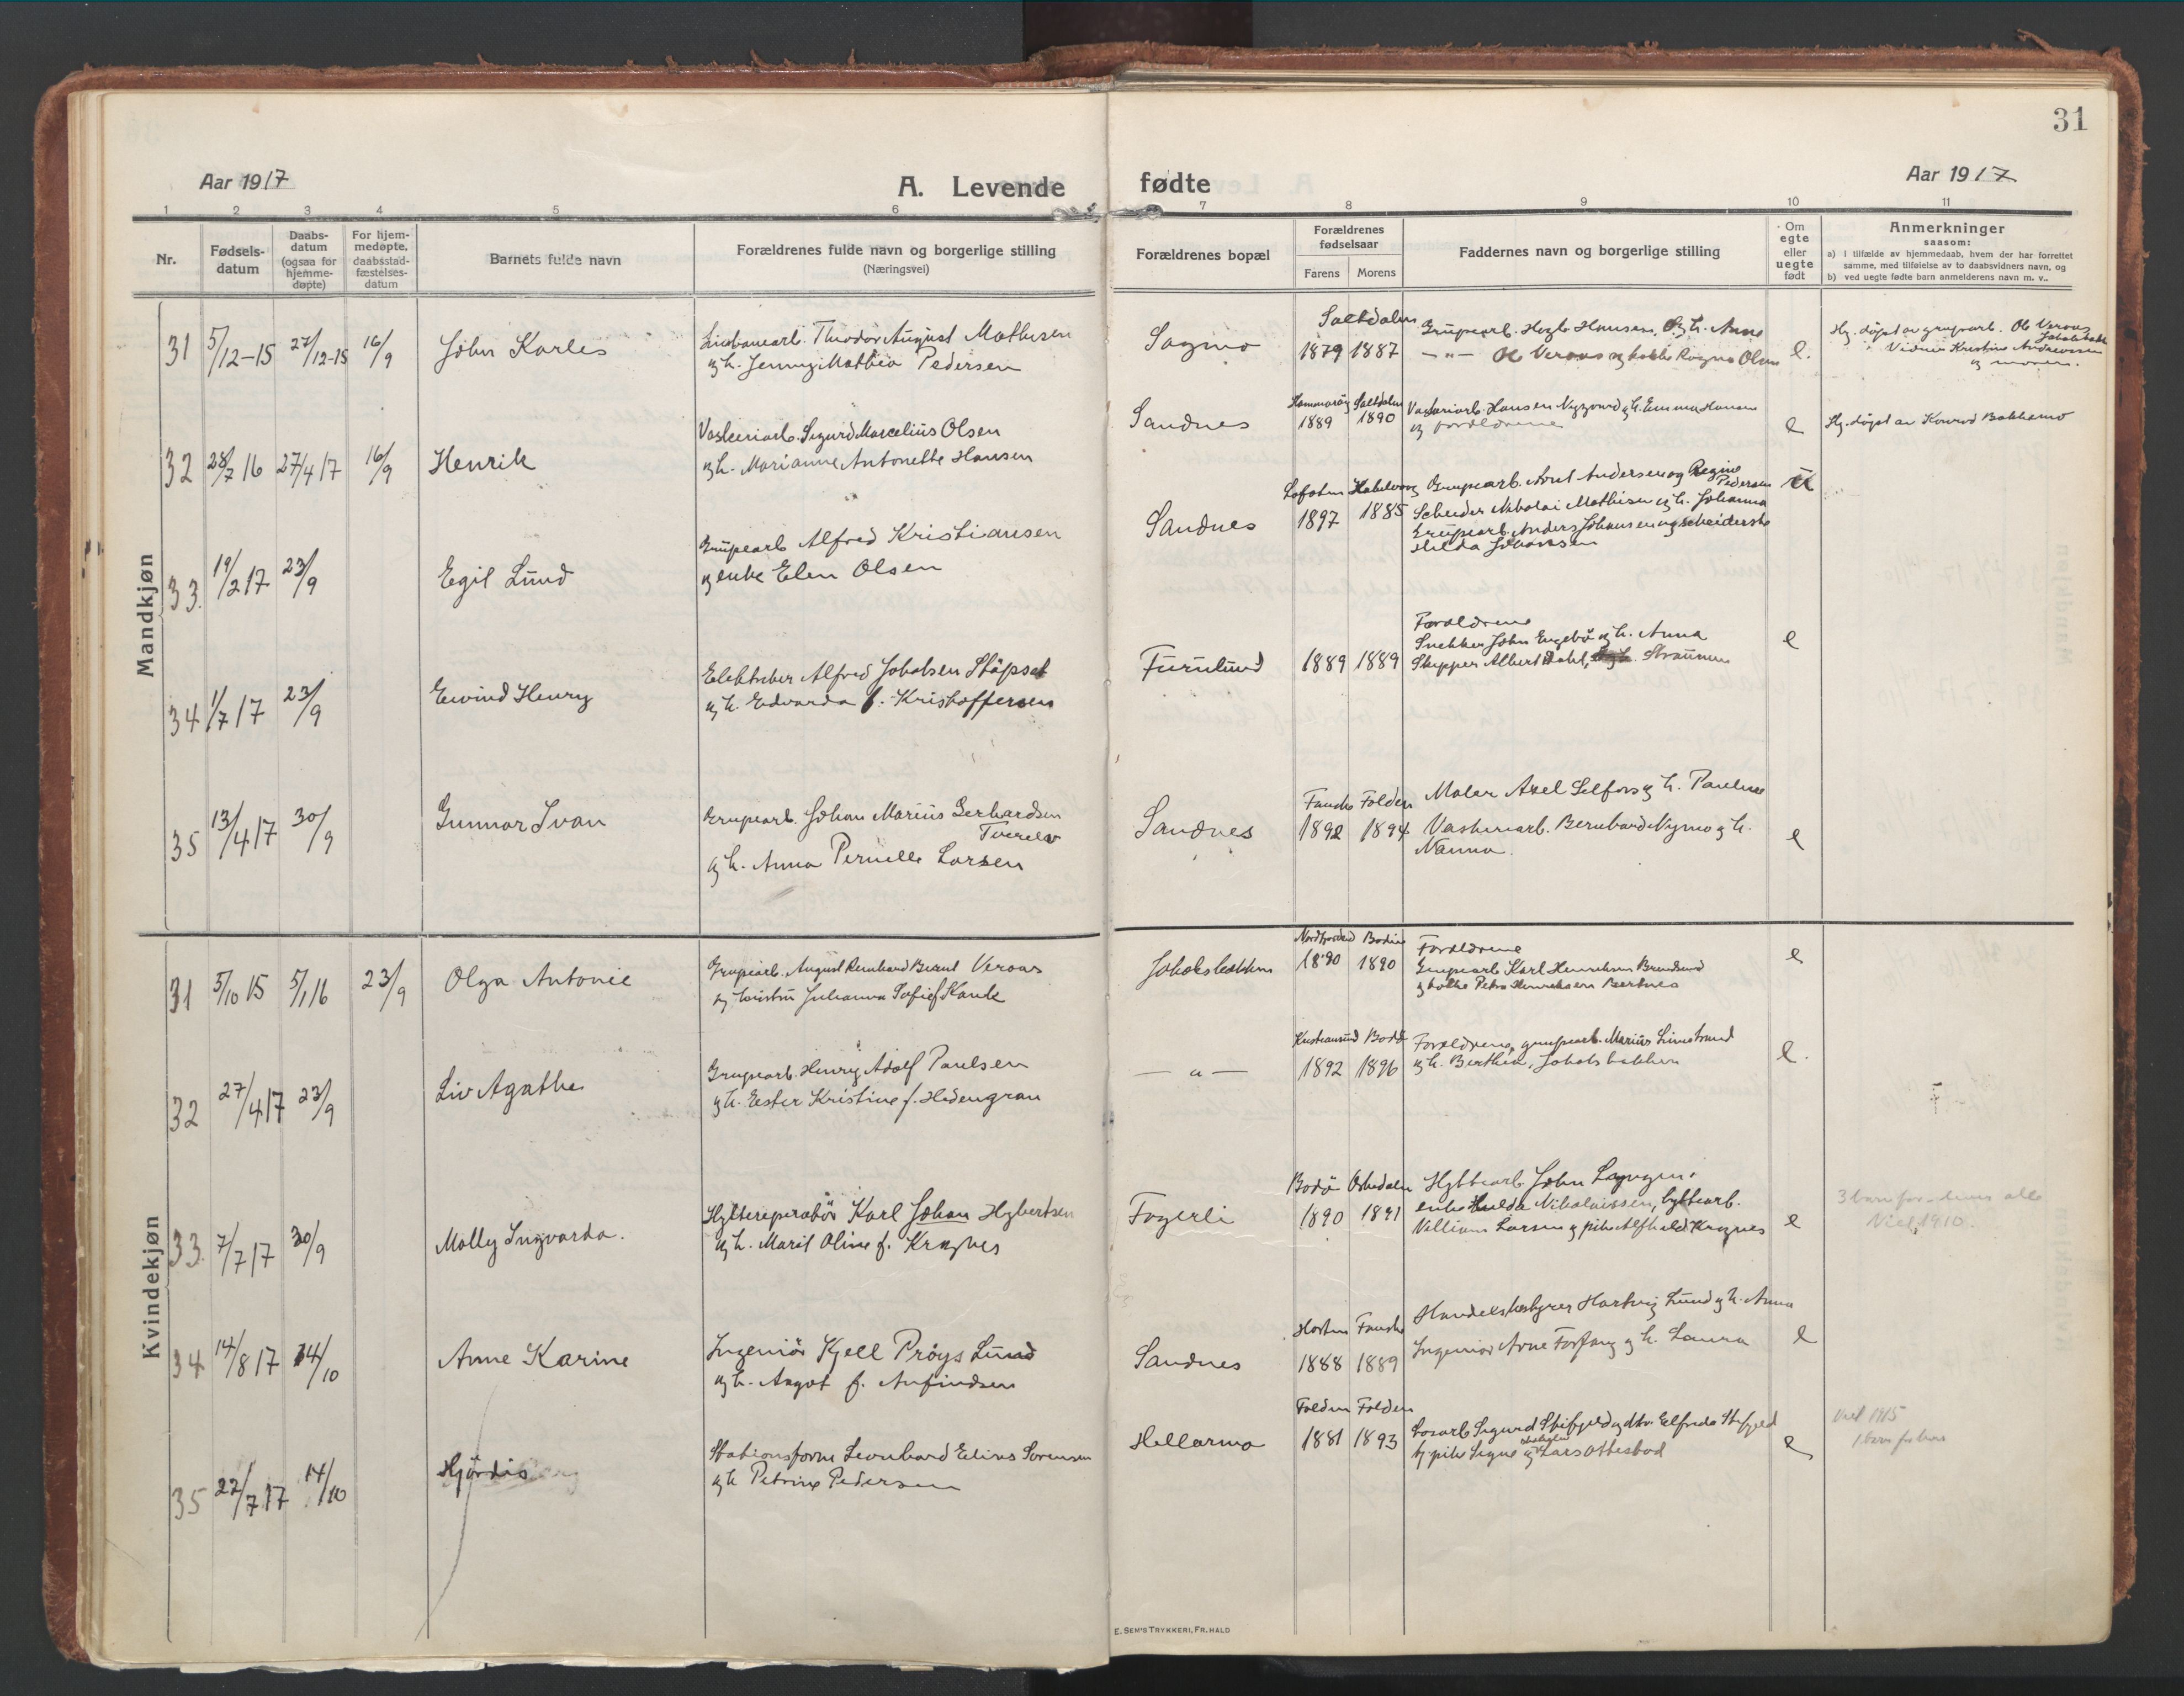 31
Aar 1917
A. Levende fødte
Aar 1917
1 2 3 4 5 6 7 8 9 10 11
Nr.
Fødsels-
datum
Daabs-
datum
(ogsaa for
hjemme-
døpte)
For hjem-
medøpte,
daabsstad-
fæstelses-
datum
Barnets fulde navn
Forældrenes fulde navn og borgerlige stilling
(Næringsvei)
Forældrenes bopæl
Forældrenes
fødselsaar
Farens Morens
Faddernes navn og borgerlige stilling
Om
egte
eller
uegte
født
Anmerkninger
saasom:
a) i tilfælde av hjemmedaab, hvem der har forrettet
samme, med tilføielse av to daabsvidners navn, og
b) ved uegte fødte barn anmelderens navn m. v..
Mandkjøn
31 5/12-15 27/12-15 16/9 John Karles
Theodor August Mathisen
og h. Jenny Mathea Pedersen
Sagmo
Saltdalen
1879 1887
Gruparb. Hegb. Hansen, og h. Anna
—„— Ole Veraas og Ragna Olsen
e.
Hj. døpt av gruparb. Ole Veraas
Jakobsbakk
Vidner Kristine Andreassen
og moren.
32 28/7 16 27/4 17 16/9 Henrik
Vaskeriarb. Sigurd Marcelius Olsen
og h. Marianne Antonette Hansen
Sandnes
Hammarøy Saltdalen
1889 1890
Vaskeriarb. Hansen Nygaard og h. Emma Hansen
og forældrene
e
Hj. døpt av Konrad Bakkemo
33. 19/2 17 23/9 Egil Lund
Grupearb Alfred Kristiansen
og enke Elen Olsen
Sandnes
Lofoten
1897 1885
Grupearb. Arnt Andersen og Regine
Pedersen
Scheider Nikolai Mathisen og h. Johanna
Grupearb. Anders Johansen og
Hilda Johansen
u
34 1/7 17 23/9 Eivind Henry
Elektriker Alfred Jakobsen Støpset
og h. Edvarda f. Kristoffersen
Furulund
1889 1889
Forældrene
Snekker John Engebø og h. Anna
Skipper Albert Dahl, Straumen
e
35 13/4 17 30/9 Gunnar Ivan
Grupearb. Johan Marius Gerhardsen
Tverelv
og h. Anna Pernelle Larsen
Sandnes
Fauske Folden
1892 1894
Maler Axel Selfors og h. Pauline
Vaskeriarb. Bernhard Nymo og h.
Nanna.
e
Kvindekjøn
31 5/10 15 5/1 16 23/9 Olga Antonie
Grupearb. August Reinhard Bernt Veraas
og hustru Johanna Sofie f. Hauk
Jakobsbakken
Nordfjorden Bodin
1890 1890
Forældrene
Grupearb Karl Henriksen Brundsund
og kokke Petra Henriksen Bertnes
e
32 27/4 17 23/9 Liv Agathe
Grupearb. Henry Adolf Paulsen
og h. Ester Kristine f. Hedengran
— „ —
Kristiansund Bodø
1892 1896
Forældrene, grupearb. Marius Linnstrand
og h. Berthea, Jakobsbakken
e.
33. 7/7 17 30/9 Molly Ingvarda.
Hyttereparatør Karl Johan Hybertsen
og h. Marit Oline f. Kragnes
Fagerli
Bodø Orkedalen
1890 1891
Hyttearb. John Langen,
enke Hulda Nikolaissen, hyttearb.
Villiam Larsen og pike Alfhild Kragnes
e
3 barn før
Viet 1910.
34 14/8 17 14/10 Anne Karine
Ingeniør Kjell Prøys Lund
og h. Aagot f. Anfindsen
Sandnes
Horten Fauske
1888 1889
Handelsbestyrer Hartvig Lund og h. Anna
Ingeniør Arne Forfang og h. Laura
e
35 22/7 17 14/10 Hjørdis
Stationsform Leonhard Elius Sørensen
og h Petrine Pedersen
Hellarmo
Folden Folden
1881 1893
Losarb Sigurd Stifjeld og dtr. Elfrida Stifjeld
tj. pike Signe og Lars Ottestad
e
Viet 1915
E. SEM'S TRYKKERI, FR.HALD